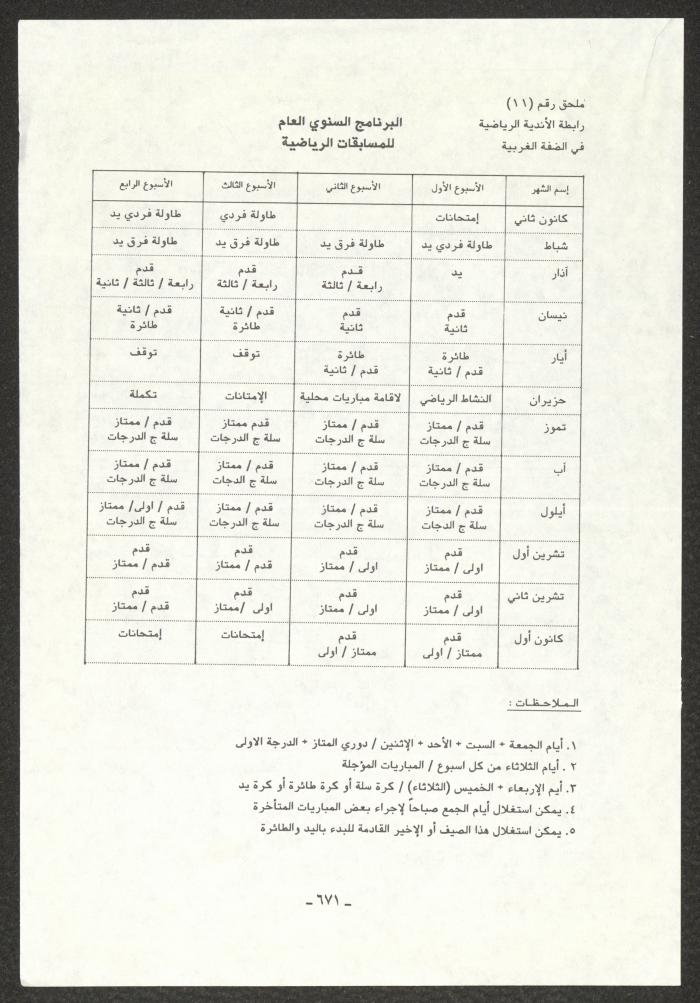 ملحق رقم (١١)
رابطة الأندية الرياضية
في الضفة الغربية
البرنامج السنوي العام
للمسابقات الرياضية
إسم الشهر الأسبوع الأول الأسبوع الثاني الأسبوع الثالث الأسبوع الرابع
كانون ثاني إمتحانات طاولة فردي طاولة فردي يد
شباط طاولة فردي يد طاولة فرق يد طاولة فرق يد طاولة فرق يد
أذار يد قـدم قدم قدم
رابعة / ثالثة رابعة / ثالثة رابعة / ثالثة / ثانية
نيسان قدم قدم قدم / ثانية قدم / ثانية
ثانية ثانية طائرة طائرة
أيار طائرة طائرة توقف توقف
قدم / ثانية قدم / ثانية
حزيران النشاط الرياضي لاقامة مباريات محلية الإمتانات تكملة
تموز قدم / ممتاز قدم / ممتاز قدم ممتاز قدم / ممتاز
سلة ج الدرجات سلة ج الدرجات سلة ج الدرجات سلة ج الدرجات
أب قدم / ممتاز قدم / ممتاز قدم / ممتاز قدم / ممتاز
سلة ج الدرجات سلة ج الدرجات سلة ج الدجات سلة ج الدرجات
أيلول قدم / ممتاز قدم / ممتاز قدم / ممتاز قدم / اولى/ ممتاز
سلة ج الدجات سلة ج الدرجات سلة ج الدرجات سلة ج الدرجات
تشرين أول قدم قدم قدم قدم
اولى / ممتاز اولى / ممتاز قدم / ممتاز قدم / ممتاز
تشرين ثاني قدم قدم قدم قدم
اولى / ممتاز اولى / ممتاز اولى /ممتاز قدم / ممتاز
كانون أول قدم قدم إمتحانات إمتحانات
ممتاز / اولى ممتاز / اولى
المـلاحـظـات :
١. أيام الجمعة + السبت + الأحد + الإثنين / دوري المتاز + الدرجة الاولى
٢ . أيام الثلاثاء من كل اسبوع / المباريات المؤجلة
٣. أيم الإربعاء + الخميس (الثلاثاء) / كرة سلة أو كرة طائرة أو كرة يد
٤. يمكن استغلال أيام الجمع صباحاً لإجراء بعض المباريات المتأخرة
٥. يمكن استغلال هذا الصيف أو الإخير القادمة للبدء باليد والطائرة
ـ ٦٧١ ـ